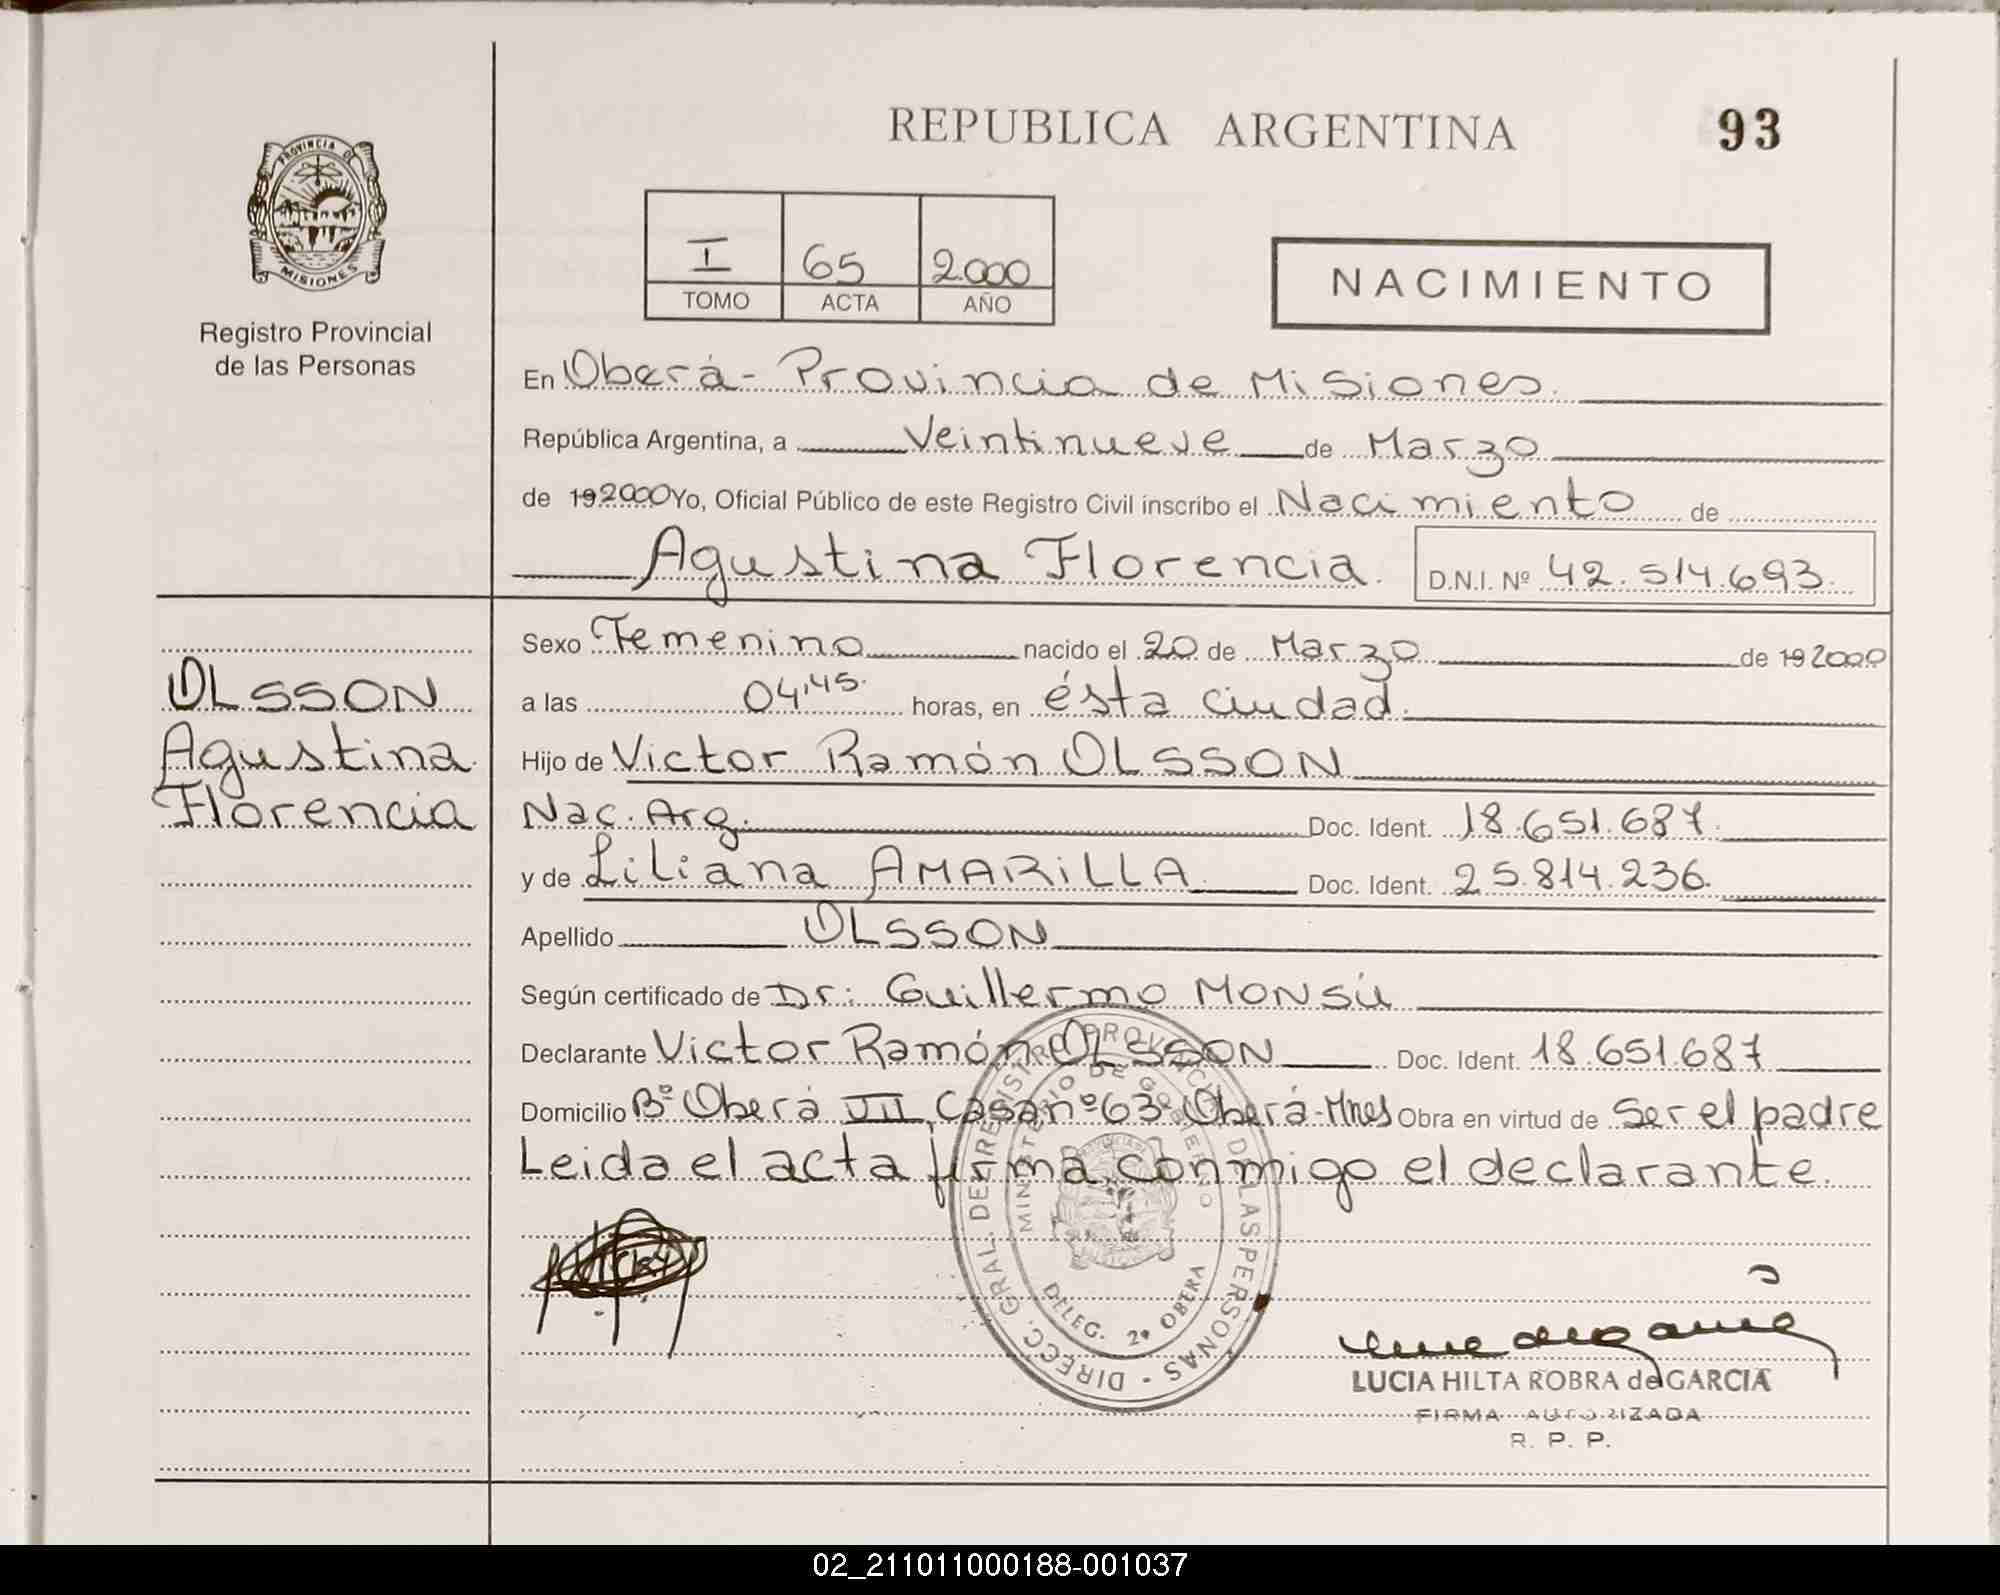 REPUBLICA ARGENTINA
93
PROVINCIA DE
MISIONES
Registro Provincial
de las Personas
I 65 2.000
TOMO ACTA AÑO
NACIMIENTO
En Oberá - Provincia de Misiones.
República Argentina, a Veintinueve de Marzo
de 19 2000 Yo, Oficial Público de este Registro Civil inscribo el Nacimiento de
Agustina Florencia. D.N.I. Nº 42.514.693.
Sexo Femenino nacido el 20 de Marzo de 19 2000
a las 04,45. horas, en ésta ciudad.
Hijo de Victor Ramón OLSSON
Nac. Arg. Doc. Ident. 18.651.687.
y de Liliana AMARiLLA. Doc. Ident. 25.814.236.
Apellido OLSSON
Según certificado de Dr: Guillermo MONSÚ
Declarante Victor Ramón OLSSON Doc. Ident. 18.651.687
Domicilio Bº Oberá VII, Casa nº 63- Oberá-Mnes Obra en virtud de Ser el padre
Leida el acta firma conmigo el declarante.
OLSSON
Agustina
Florencia
DIRECC. GRAL. DE REGISTRO PROVINCIAL DE LAS PERSONAS -
MINISTERIO DE GOBIERNO
DELEG. 2ª OBERA
LUCIA HILTA ROBRA de GARCIA
FIRMA AUTORIZADA
R. P. P.
02_211011000188-001037